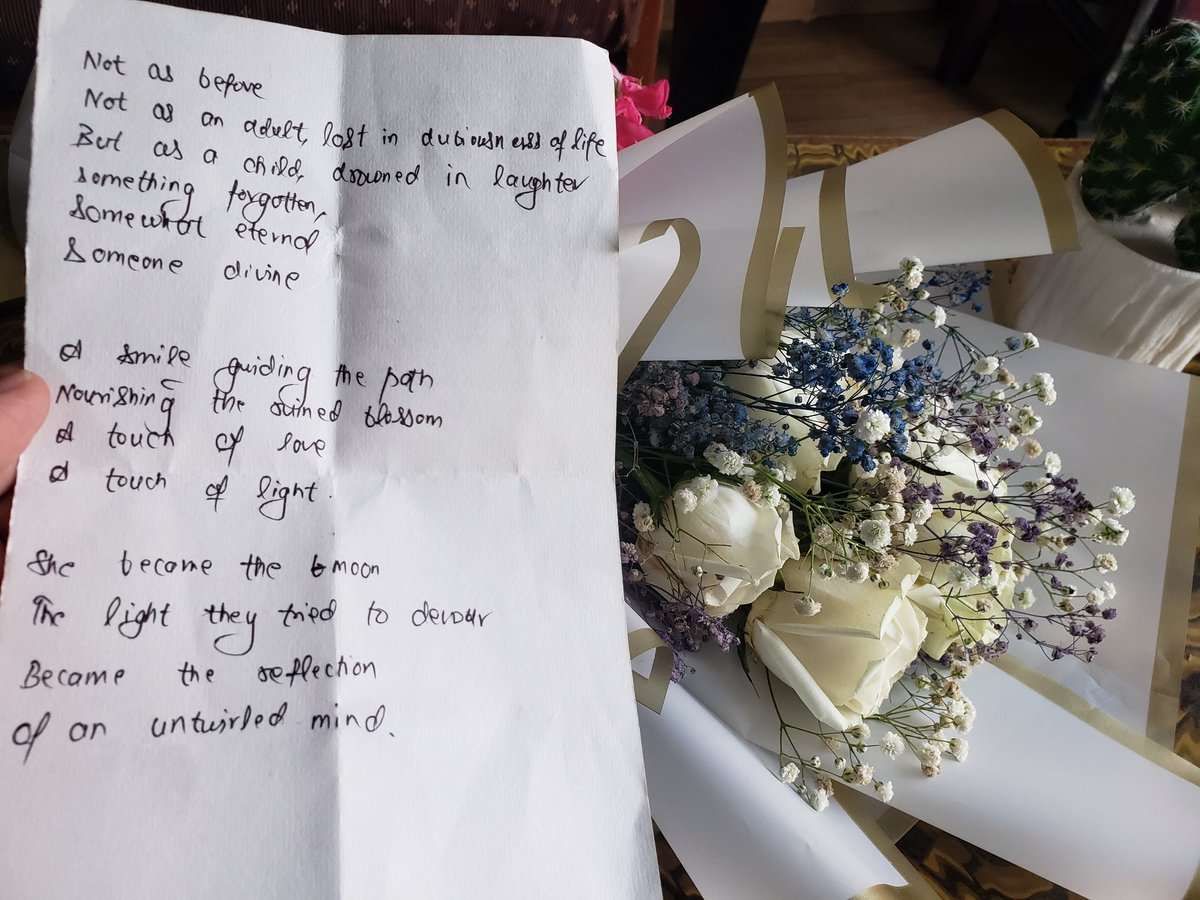 Not as before
Not as an adult, lost in dubiousness of life
But as a child, drowned in laughter
something forgotten,
Somewhat eternal
Someone divine
A smile guiding the path
Nourishing the ruined blossom
A touch of love
A touch of light.
She became the moon
The light they tried to devour
Became the reflection
of an untwirled mind.